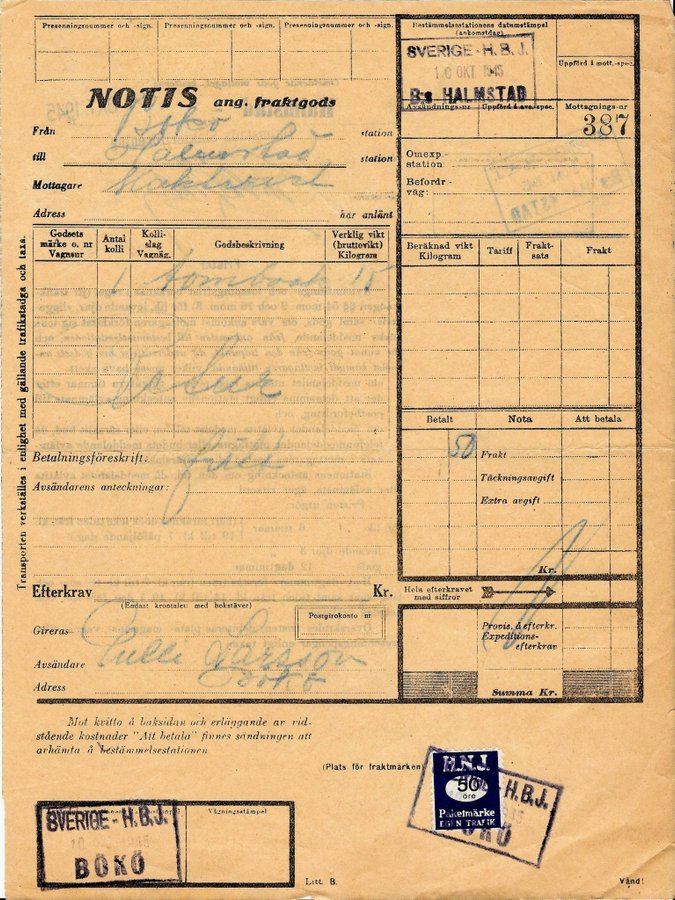 Presenningsnummer och -sign. Presenningsnummer och -sign. Presenningsnummer och -sign.
Bestämmelsestationens datumstämpel
(ankomstdag)
SVERIGE - H.B.J.
10 OKT 1945
B:s HALMSTAD
Uppförd i mott.-spec.
NOTIS ang. fraktgods
Avsändnings-nr Uppförd i avs.spec. Mottagnings-nr
387
Från Bökö station
till Halmstad station
Mottagare
Adress här anlänt
Omexp.-
station:
Befordr.-
väg:
Godsets
märke o. nr
Vagnsnr
Antal
kolli
Kolli-
slag
Vagnäg.
Godsbeskrivning
Verklig vikt
(bruttovikt)
Kilogram
Beräknad vikt
Kilogram
Tariff
Frakt-
sats
Frakt
1 15
Transporten verkställes i enlighet med gällande trafikstadga och taxa.
Betalt Nota Att betala
50 Frakt
Täckningsavgift
Extra avgift
Kr.
Betalningsföreskrift:
Avsändarens anteckningar:
Efterkrav Kr.
(Endast krontalen med bokstäver)
Hela efterkravet
med siffror
Gireras
Postgirokonto nr
Provis. å efterkr.
Expeditions-
efterkrav
Avsändare Larsson
Adress Bökö
Summa Kr.
Mot kvitto å baksidan och erläggande av vid-
stående kostnader "Att betala" finnes sändningen att
avhämta å bestämmelsestationen
(Plats för fraktmärken)
H.N.J.
50
öre
Paketmärke
EGEN TRAFIK
H.B.J.
BÖKÖ
SVERIGE - H.B.J.
BÖKÖ
Vägningsstämpel
Litt. B.
Vänd!